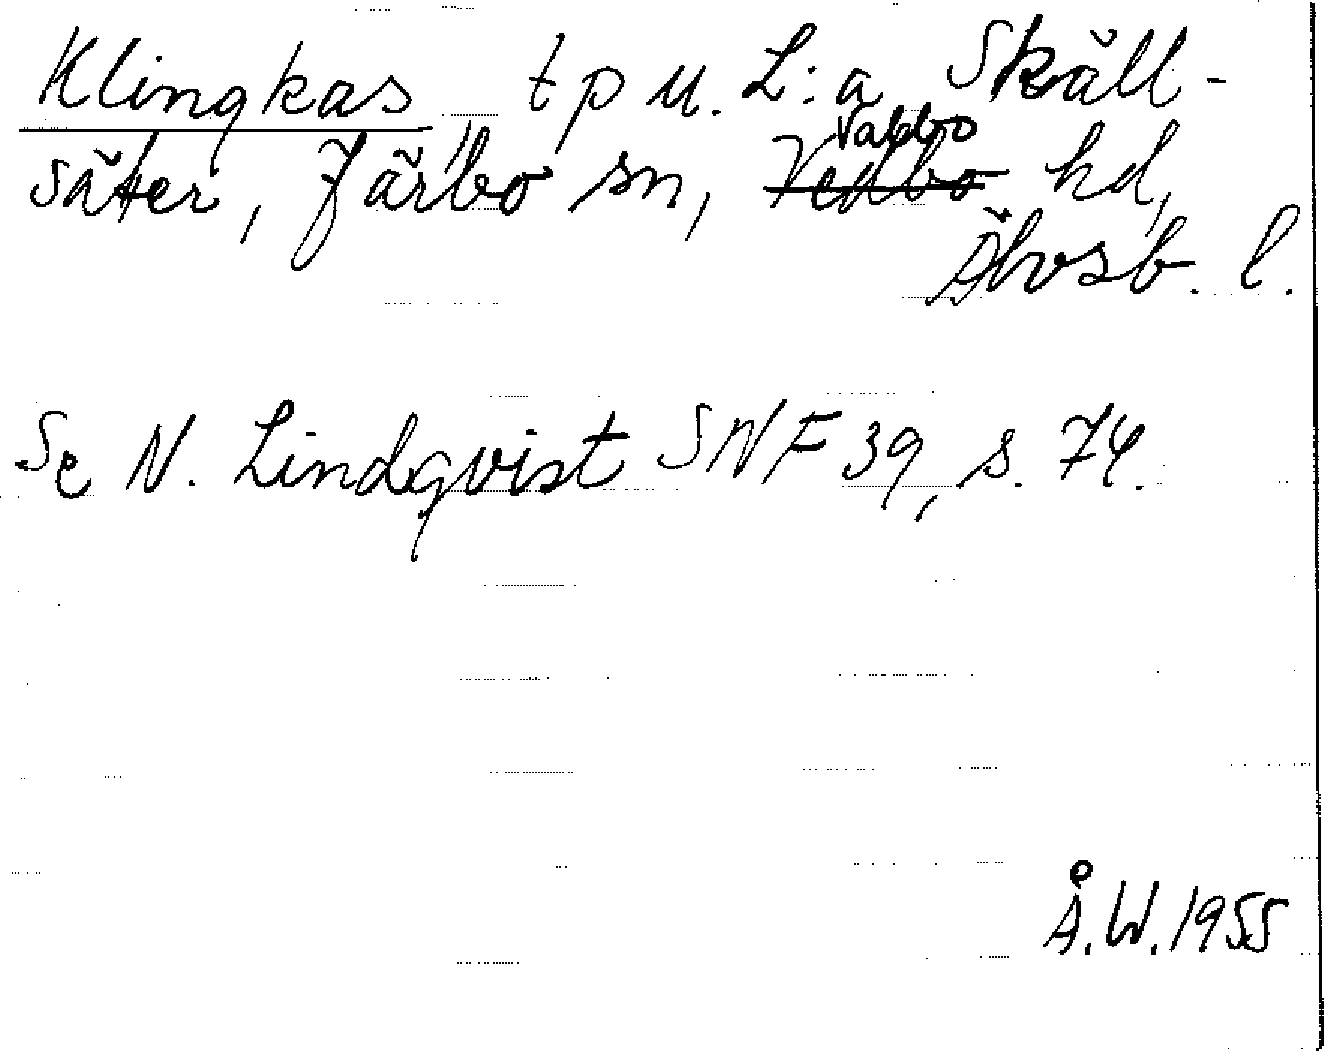 Klingkas tp u. L:a Skäll-
säter, Färbo sn, Valbo
Vedbo hd,
Älvsb. l.
Se N. Lindqvist SNF 39, s. 74.
Å.W. 1955